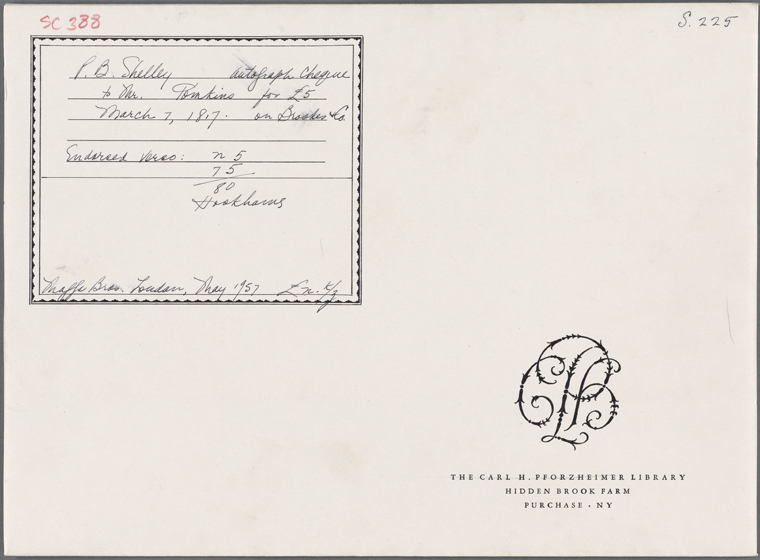 SC 388
S. 225
P. B. Shelley autograph Cheque
to Mr. Tomkins for £5
March 7, 1817. on Brookes & Co.
Endorsed verso: n 5
75
80
Hookhams
Maggs Bros. London, May 1957
THE CARL H. PFORZHEIMER LIBRARY
HIDDEN BROOK FARM
PURCHASE · NY